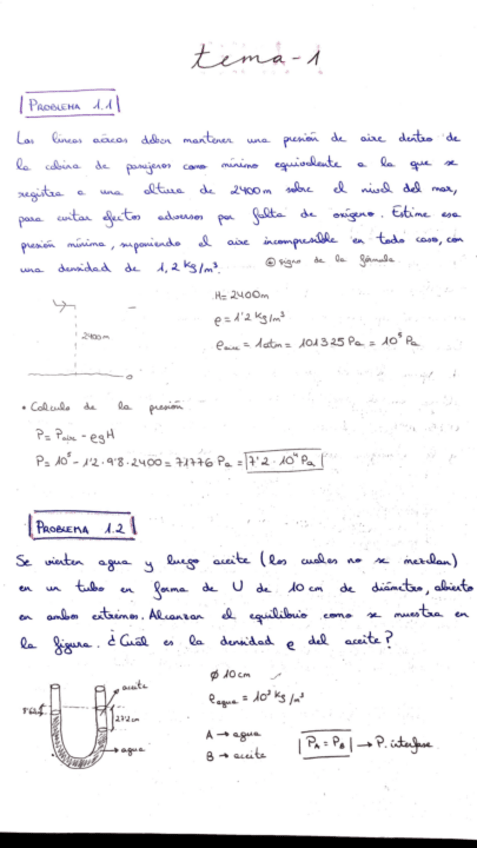 tema-1
PROBLEMA 1.1
Las líneas aéreas deben mantener una presión de aire dentro de
la cabina de pasajeros como mínimo equivalente a la que se
registra a una altura de 2400m sobre el nivel del mar,
para evitar efectos adversos por falta de oxígeno. Estime esa
presión mínima, suponiendo el aire incompresible en todo caso, con
una densidad de 1,2 kg/m³.
signo de la fórmula
H= 2400m
ρ = 1'2 kg/m³
ρaire = 1atm = 101325 Pa = 10⁵ Pa
2400m
0
• Calculo de la presión
P= Paire - ρgH
P= 10⁵ - 1'2 · 9'8 · 2400 = 71776 Pa = 7'2 · 10⁴ Pa
PROBLEMA 1.2
Se vierten agua y luego aceite (los cuales no se mezclan)
en un tubo en forma de U de 10 cm de diámetro, abierto
en ambos extremos. Alcanzan el equilibrio como se muestra en
la figura. ¿Cuál es la densidad ρ del aceite?
aceite
27'2cm
agua
Ø 10cm
ρagua = 10³ kg/m³
A → agua
B → aceite
PA = PB → P. interfase